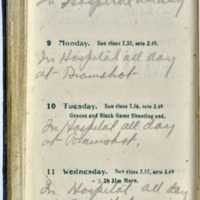 In Hospital all day
9 Monday. Sun rises 7.55, sets 3.49.
In Hospital all day
at Bramshot.
10 Tuesday. Sun rises 7.56, sets 3.49.
Grouse and Black Game Shooting end.
In Hospital all day
at Bramshot,
11 Wednesday. Sun rises 7.57, sets 3.49
In Hospital all day